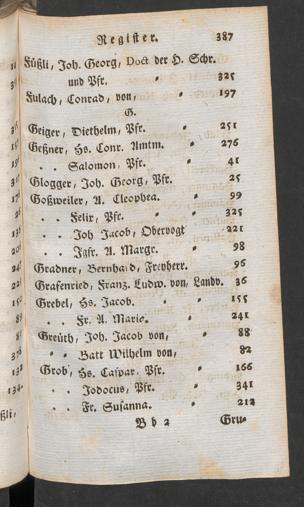 Register. 387
Füßli, Joh. Georg, Doct der H. Schr.
und Pfr. 325
Fulach, Conrad, von, 197
G.
Geiger, Diethelm, Pfr. 251
Geßner, Hs. Conr. Amtm. 276
. . Salomon, Pfr. 41
Glogger, Joh. Georg, Pfr. 25
Goßweiler, A. Cleophea. 99
. . Felix, Pfr. 325
. . Joh Jacob, Obervogt 221
. . Jgfr. A. Margr. 98
Gradner, Bernhard, Freyherr. 96
Grafenried, Franz. Ludw. von, Landv. 36
Grebel, Hs. Jacob. 155
. . Fr. A. Marie. 241
Greuth, Joh. Jacob von, 88
" " Batt Wilhelm von, 82
Grob, Hs. Caspar, Pfr. 166
. . Jodocus, Pfr. 341
. . Fr. Susanna. 212
B b 2 Gru-